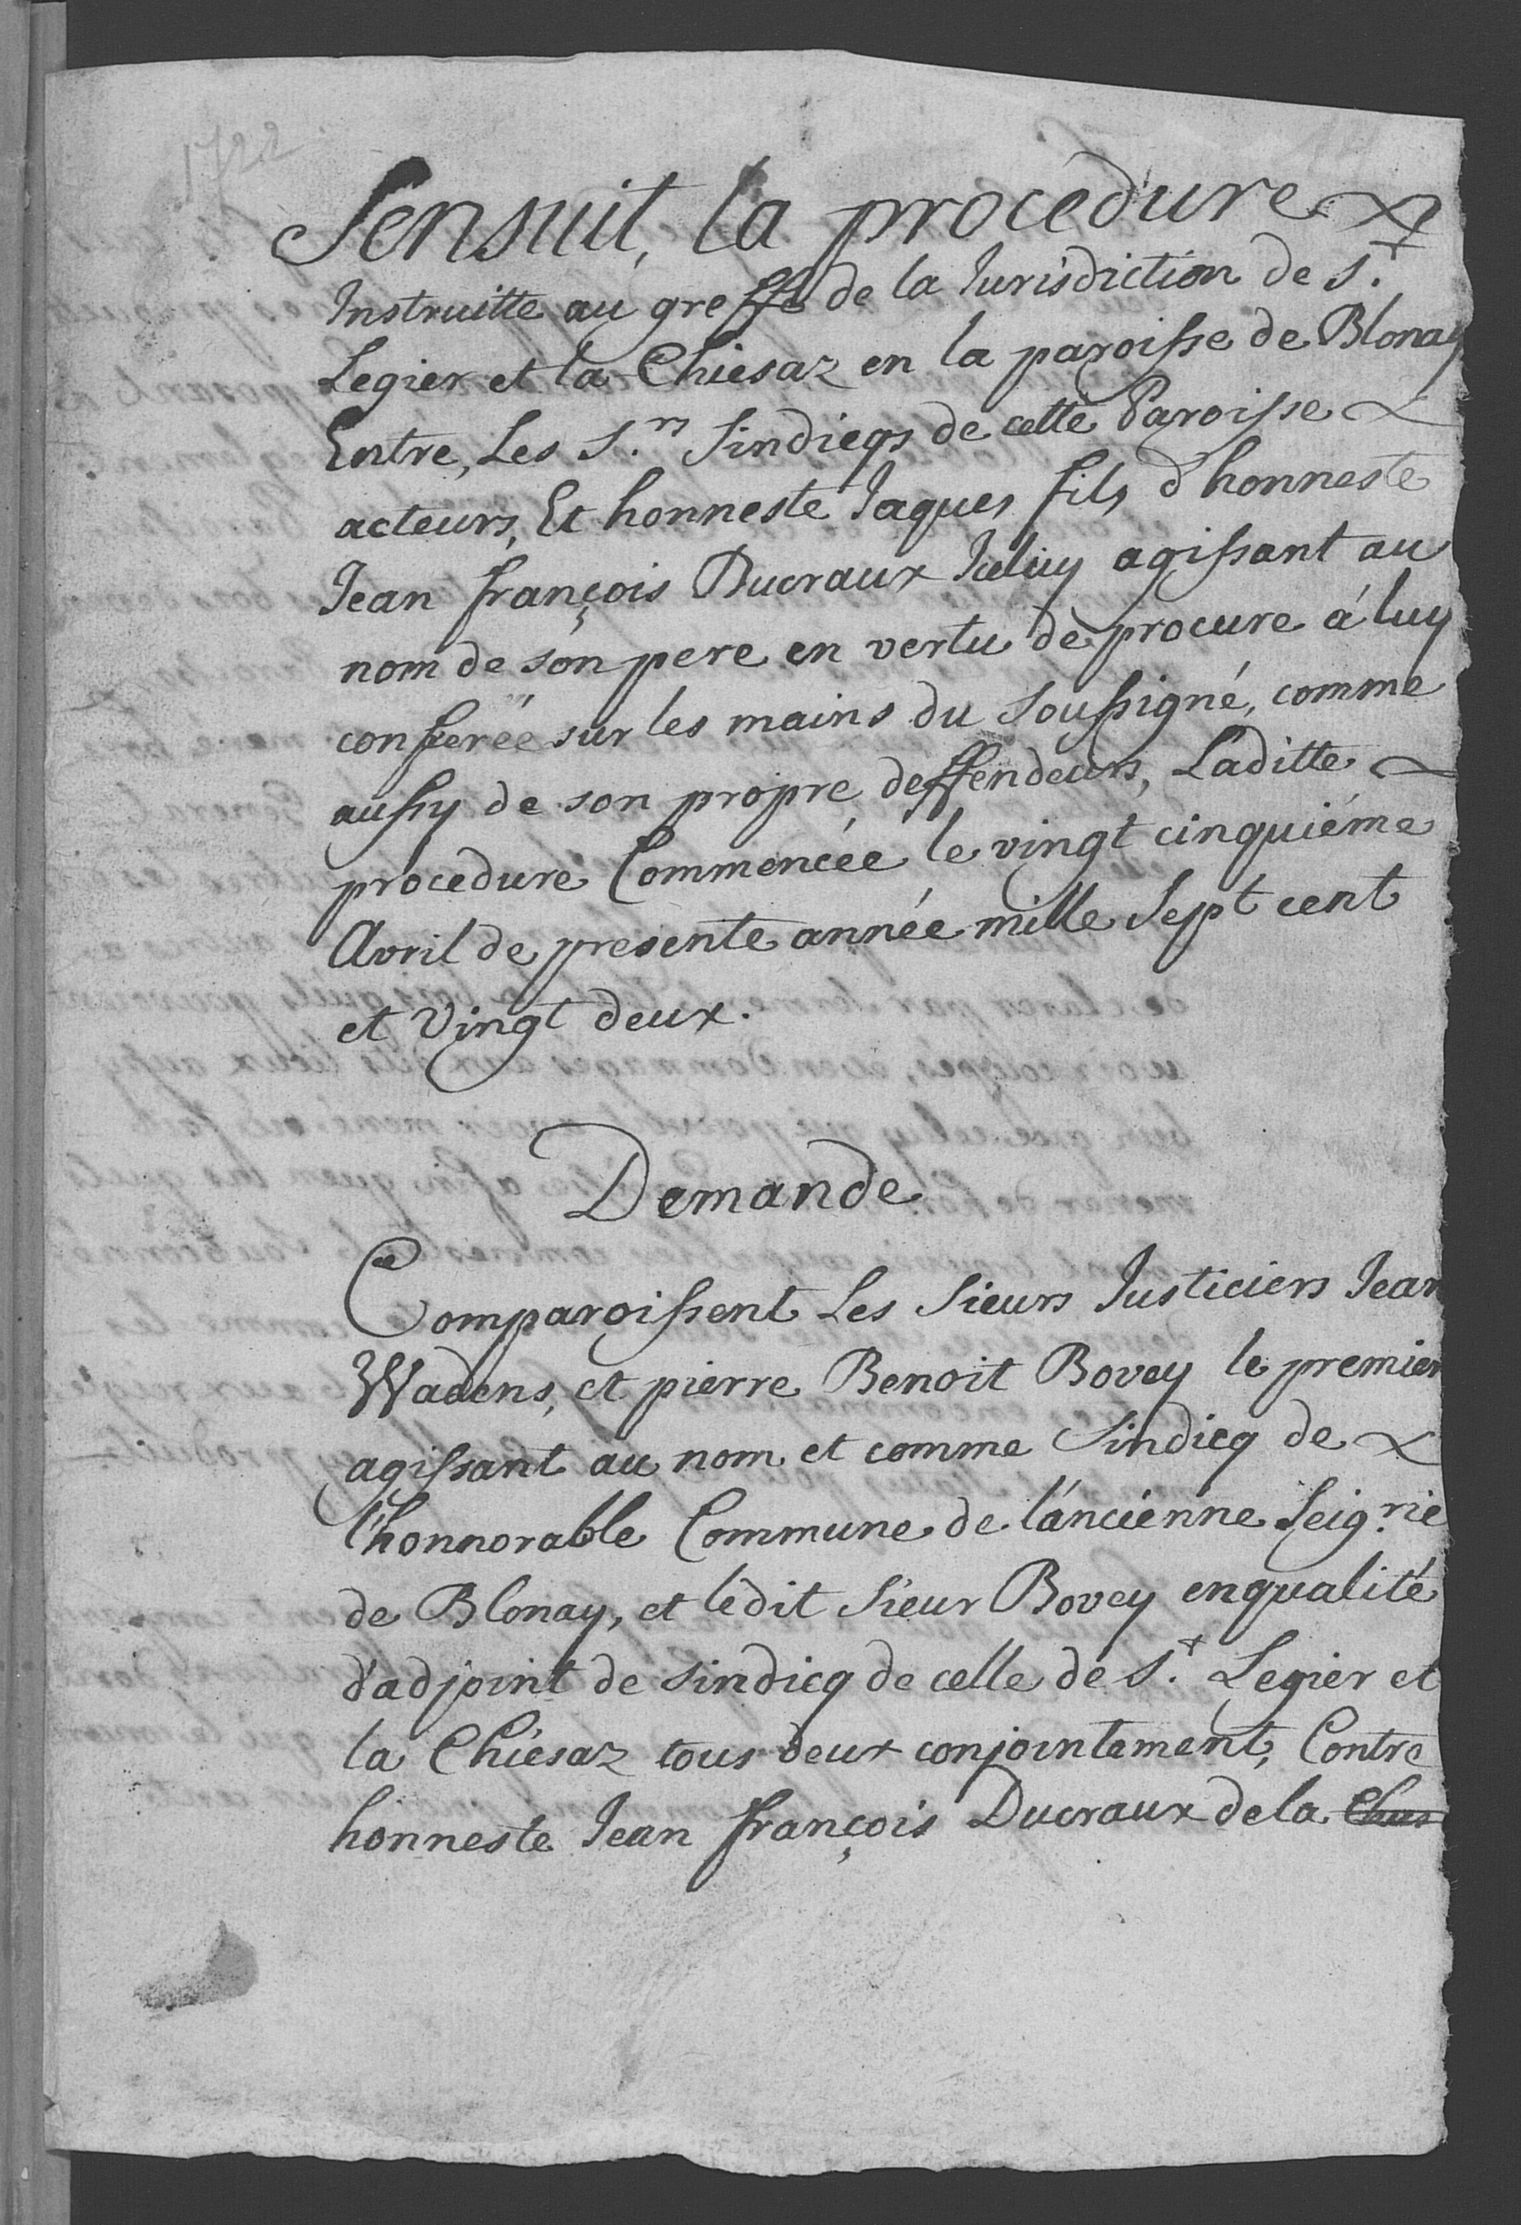 1722
Sensuit, la procedure
Instruitte au greffe de la Jurisdiction de St.
Legier et la Chiesaz en la paroisse de Blonay
Entre, Les Srs. Sindicqs de cette Paroisse
acteurs, Et honneste Jaques fils d'honneste
Jean françois Ducraux Iceluy agissant au
nom de son pere en vertu de procure á luy
conferée sur les mains du soussigné, comme
aussy de son propre, deffendeurs, Laditte
procedure Commencée le vingt cinquiéme
Avril de presente année mille Sept cent
et Vingt deux.
Demande
Comparoissent Les Sieurs Justiciers Jean
Wadens, et pierre Benoit Bovey le premier
agissant au nom et comme Sindicq de
l'honnorable Commune de láncienne Seig.rie
de Blonay, et ledit Sieur Bovey enqualité
d'adjoint de sindicq de celle de St. Legier et
la Chiésaz tous deux conjointement, Contre
honneste Jean françois Ducraux de la